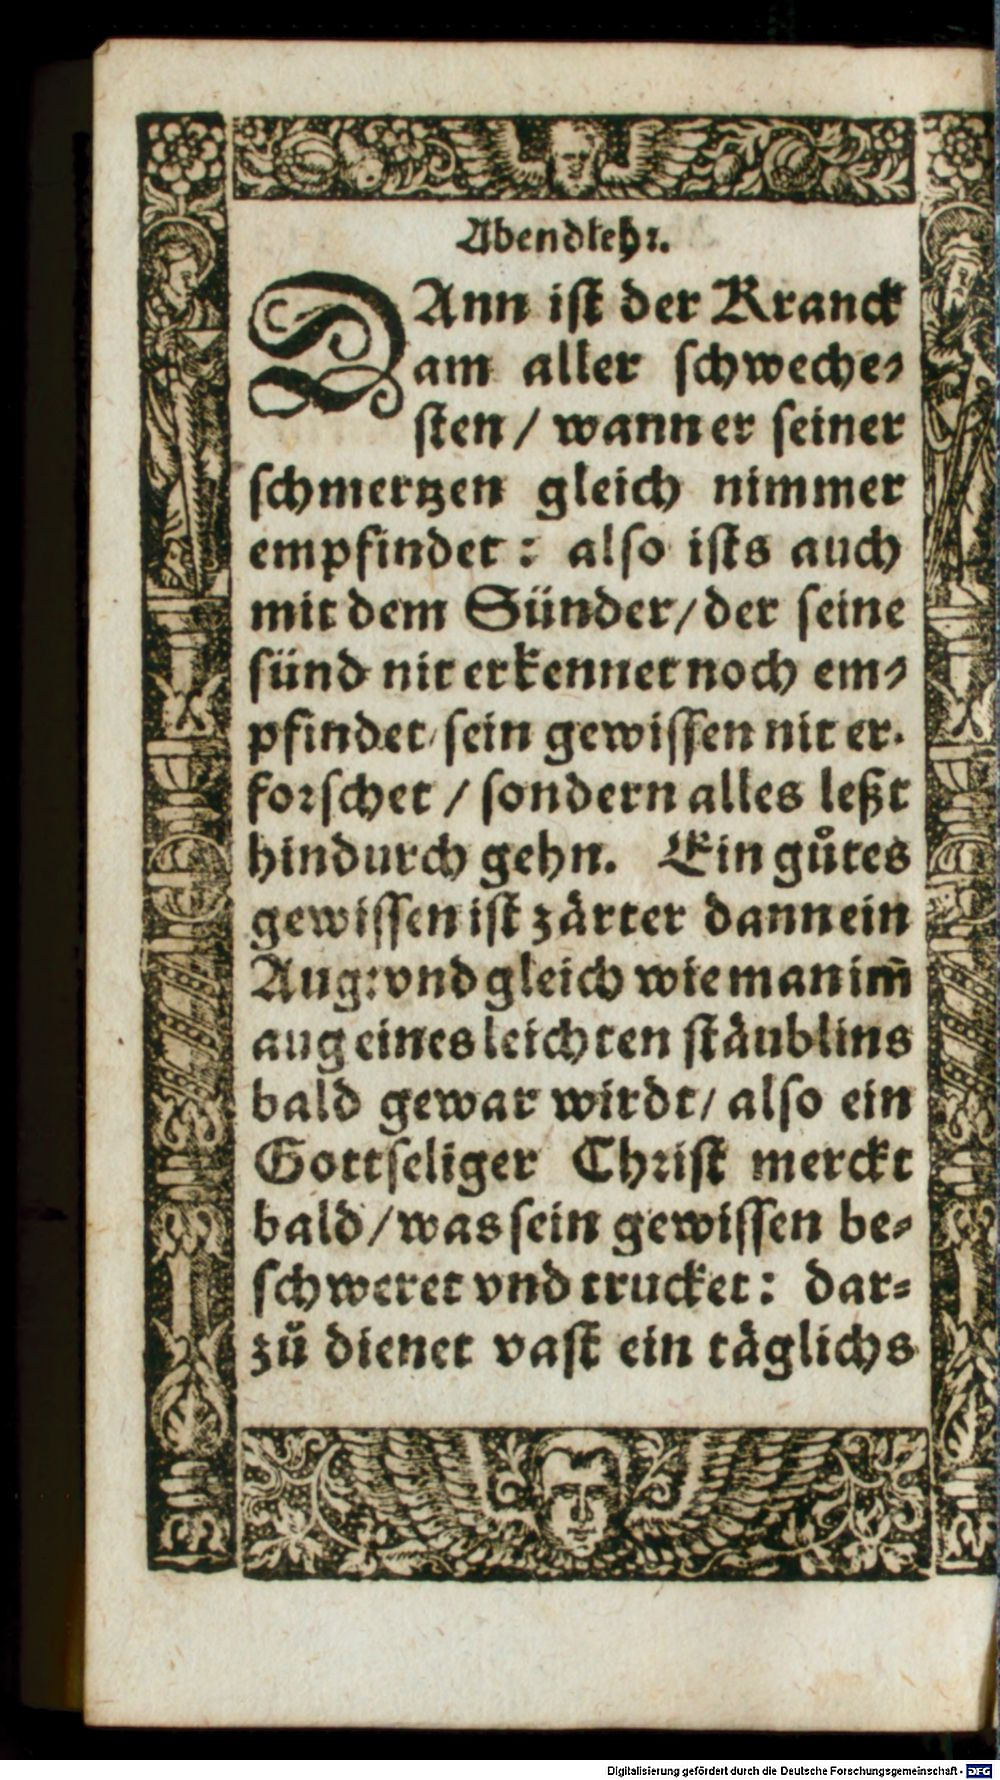 Abendlehr.
DAnn ist der Kranck
am aller schweche-
sten / wann er seiner
schmertzen gleich nimmer
empfindet : also ists auch
mit dem Sünder / der seine
sünd nit erkennet noch em-
pfindet / sein gewissen nit er-
forschet / sondern alles leßt
hindurch gehn. Ein gůtes
gewissen ist zärter dann ein
Aug: vnd gleich wie man im̃
aug eines leichten stäublins
bald gewar wirdt / also ein
Gottseliger Christ merckt
bald / was sein gewissen be-
schweret vnd trucket : dar-
zů dienet vast ein täglichs
Digitalisierung gefördert durch die Deutsche Forschungsgemeinschaft - DFG